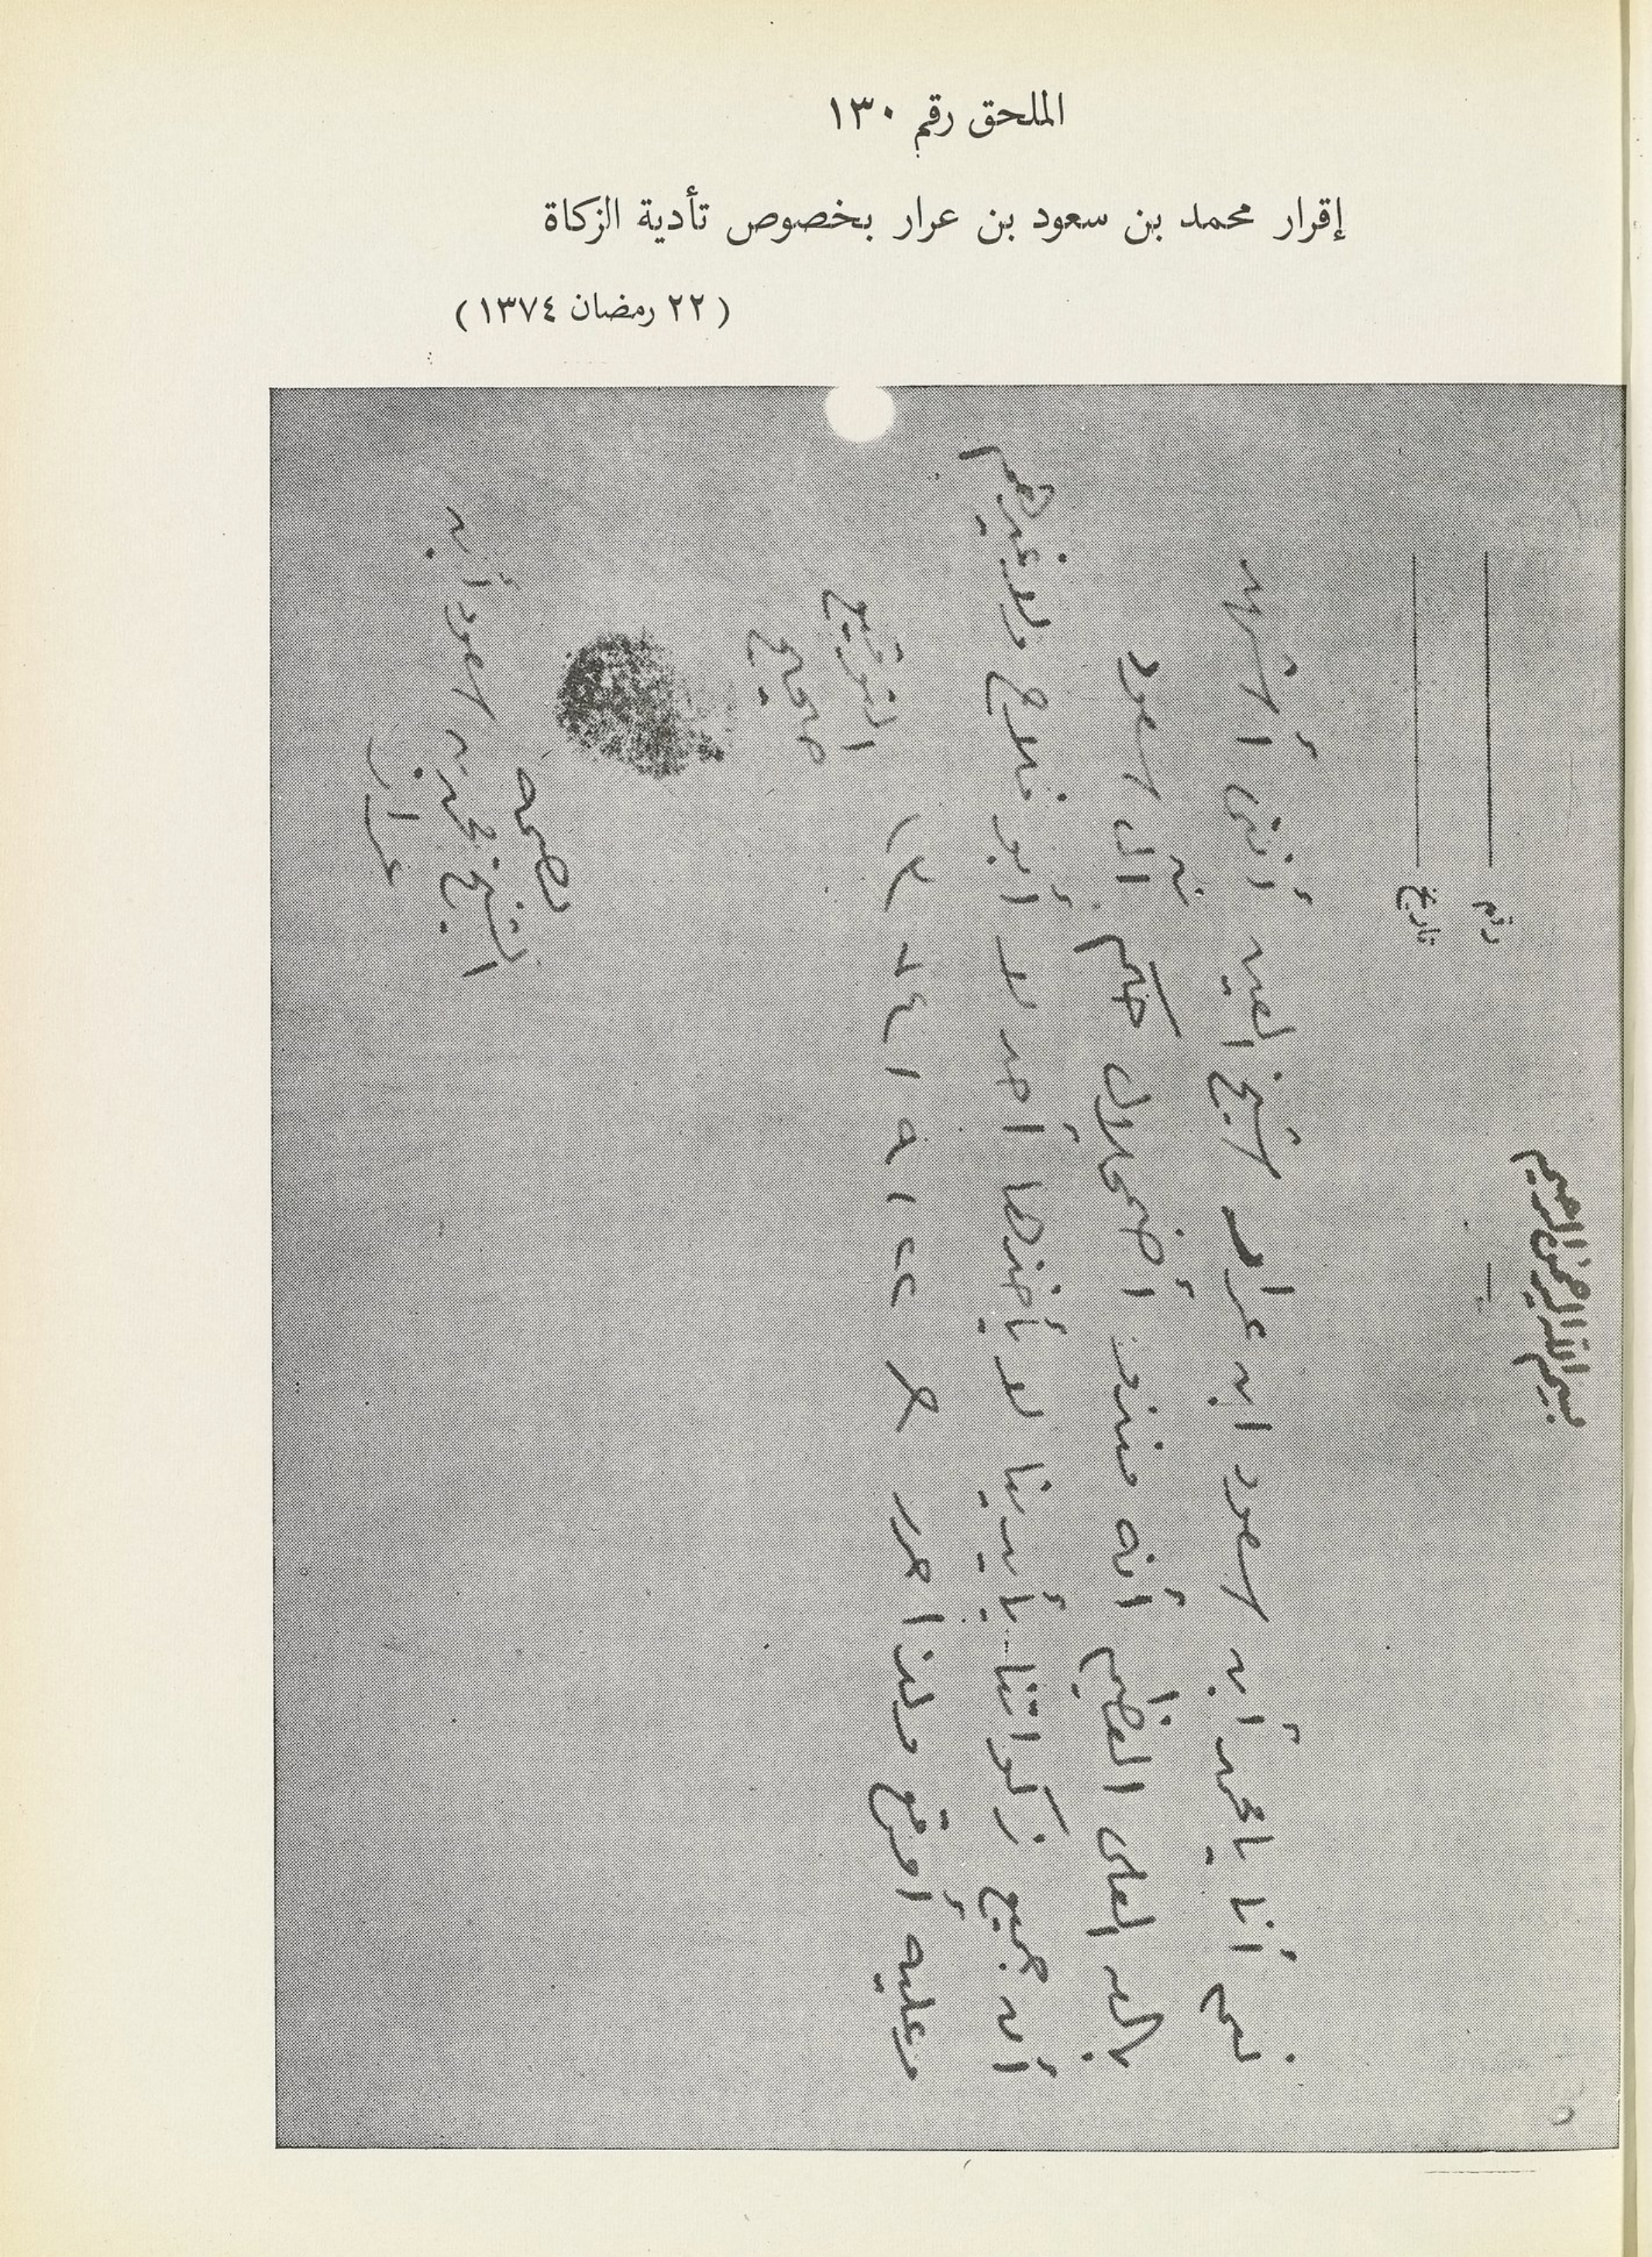 الملحق رقم ١٣٠
إقرار محمد بن سعود بن عرار بخصوص تأدية الزكاة
( ٢٢ رمضان ١٣٧٤ )
بسم الله الرحمن الرحيم
رقم
تاريخ
نعم أنا يا محمد أبن سعود ابن عرار شيخ أننى أشهد
بالله العلى العظيم أنه منذو أضمحلال حكم آل سعود
أن جميع زكواتنا بأيدينا لا يأخذها أحد لا أبو فلاح ولا غيرهم
وعليه أوقع ولذا حرر ٢٢ / ٩ / ٧٤ ١٣
التوقيع
صحيح
بصمة
الشيخ محمد بن سعود أبن
عرار